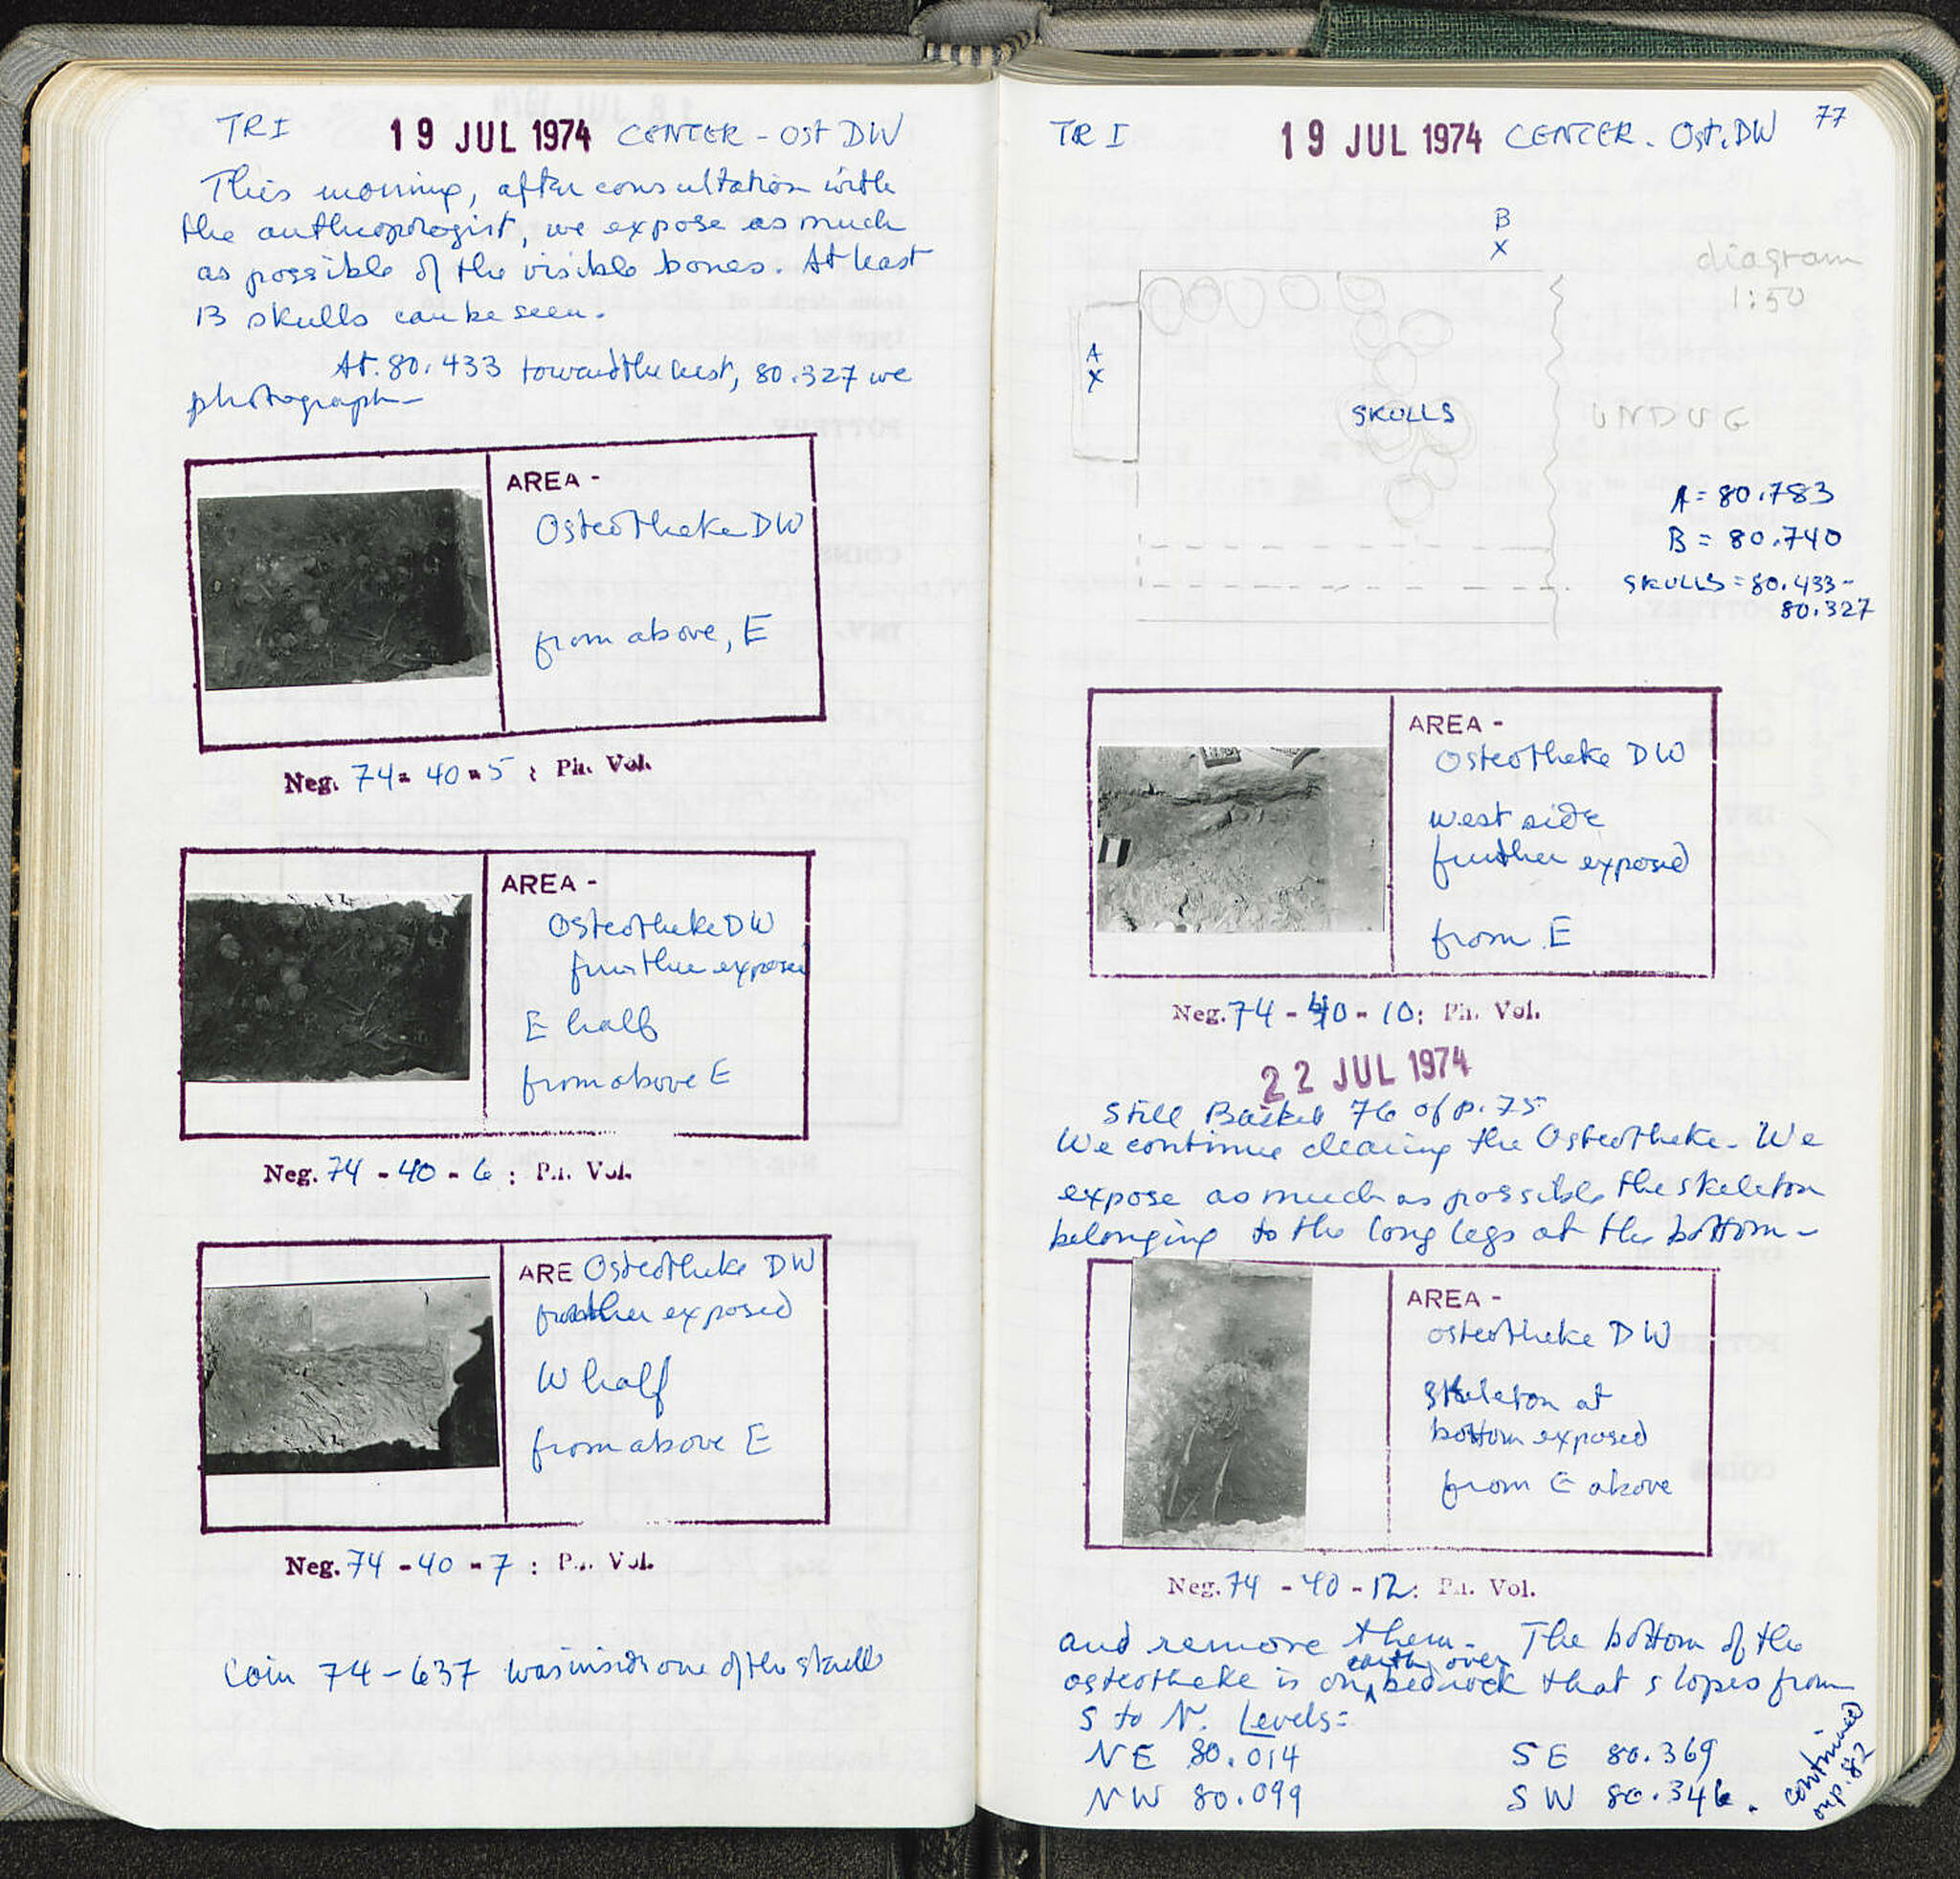 TR I 19 JUL 1974 CENTER - Ost DW
This morning, after consultation with
the anthropologist, we expose as much
as possible of the visible bones. At least
13 skulls can be seen.
At 80.433 toward the west, 80.327 we
photograph -
AREA -
Osteotheke DW
from above, E
Neg. 74 - 40 - 5 : Ph. Vol.
AREA -
Osteotheke DW
further exposed
E half
from above E
Neg. 74 - 40 - 6 : Ph. Vol.
ARE Osteotheke DW
further exposed
W half
from above E
Neg. 74 - 40 - 7 : Ph. Vol.
Coin 74-637 was inside one of the skulls
77
TR I 19 JUL 1974 CENTER - Ost. DW
B
X
diagram
1:50
A
X
SKULLS
UNDUG
A = 80.783
B = 80.740
SKULLS = 80.433-
80.327
AREA -
Osteotheke DW
west side
further exposed
from E
Neg. 74 - 40 - 10 : Ph. Vol.
22 JUL 1974
Still Basket 76 of p. 75
We continue clearing the Osteotheke. We
expose as much as possible the skeleton
belonging to the long legs at the bottom -
AREA -
osteotheke DW
skeleton at
bottom exposed
from E above
Neg. 74 - 40 - 12 : Ph. Vol.
and remove them. The bottom of the
earth over
osteotheke is on bedrock that slopes from
S to N. Levels:
NE 80.014 SE 80.369
NW 80.099 SW 80.346.
continued
on p. 82